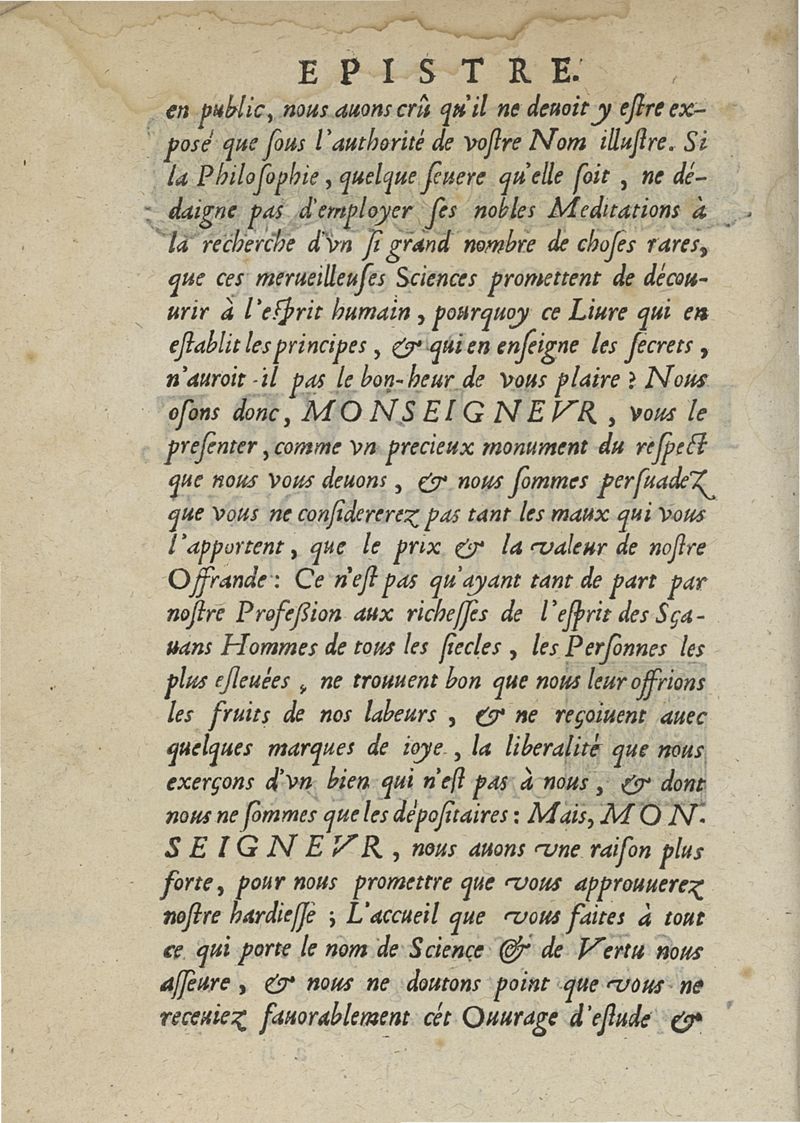 EPISTRE.
en public, nous auons crû qu'il ne deuoit y eſtre ex-
posé que ſous l'authorité de voſtre Nom illuſtre. Si
la Philoſophie, quelque ſeuere qu'elle ſoit, ne dé-
daigne pas d'employer ſes nobles Meditations à
la recherche d'vn ſi grand nombre de choſes rares,
que ces merueilleuſes Sciences promettent de décou-
urir à l'eſprit humain, pourquoy ce Liure qui en
eſtablit les principes, & qui en enſeigne les ſecrets,
n'auroit-il pas le bon-heur de vous plaire? Nous
oſons donc, MONSEIGNEVR, vous le
preſenter, comme vn precieux monument du reſpect
que nous vous deuons, & nous ſommes perſuadez
que vous ne conſidererez pas tant les maux qui vous
l'apportent, que le prix & la valeur de noſtre
Offrande: Ce n'eſt pas qu'ayant tant de part par
noſtre Profeſſion aux richeſſes de l'eſprit des Sça-
uans Hommes de tous les ſiecles, les Perſonnes les
plus eſleuées, ne trouuent bon que nous leur offrions
les fruits de nos labeurs, & ne reçoiuent auec
quelques marques de ioye, la liberalité que nous
exerçons d'vn bien qui n'eſt pas à nous, & dont
nous ne ſommes que les dépoſitaires: Mais, MON-
SEIGNEVR, nous auons vne raiſon plus
forte, pour nous promettre que vous approuuerez
noſtre hardieſſe; L'accueil que vous faites à tout
ce qui porte le nom de Science & de Vertu nous
aſſeure, & nous ne doutons point que vous ne
receuiez fauorablement cét Ouurage d'eſtude &